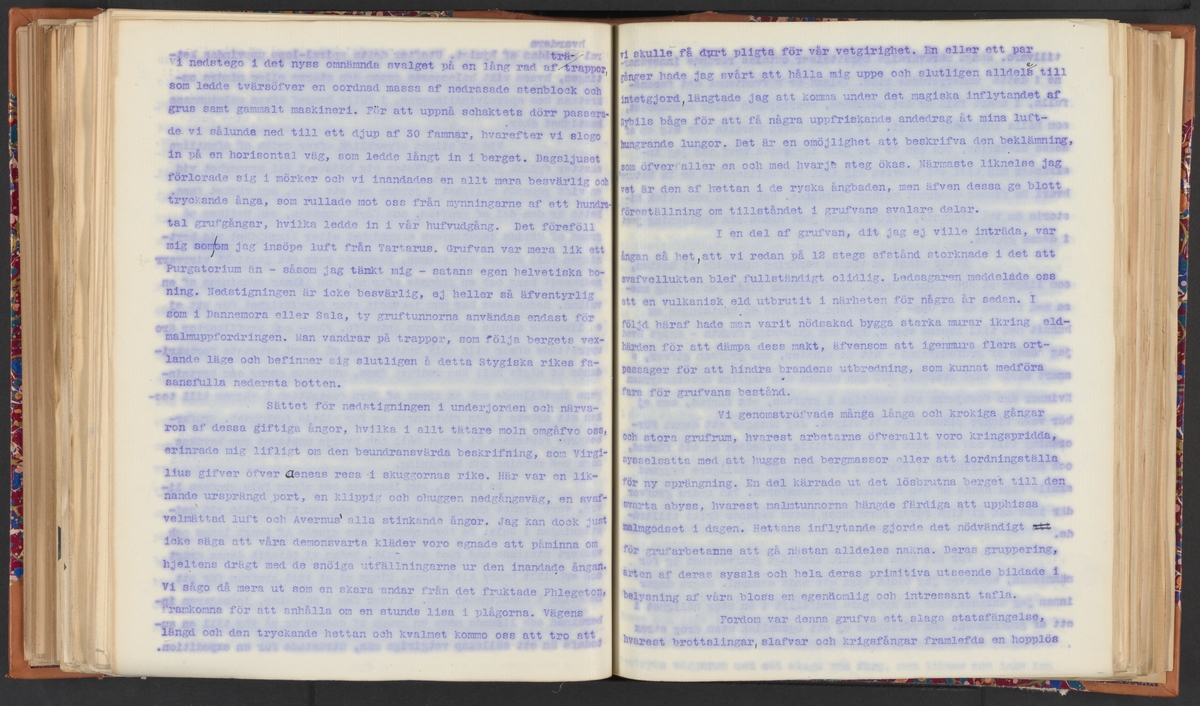 trä-
Vi nedstego i det nyss omnämnda svalget på en lång rad af trappor,
som ledde tvärsöfver en oordnad massa af nedrasade stenblock och
grus samt gammalt maskineri. För att uppnå schaktets dörr passera-
de vi sålunda ned till ett djup af 30 famnar, hvarefter vi slogo
in på en horisontal väg, som ledde långt in i berget. Dagsljuset
förlorade sig i mörker och vi inandades en allt mera besvärlig och
tryckande ånga, som rullade mot oss från mynningarne af ett hundra-
tal grufgångar, hvilka ledde in i vår hufvudgång. Det föreföll
mig som om jag insöpe luft från Tartarus. Grufvan var mera lik ett
Purgatorium än - såsom jag tänkt mig - satans egen helvetiska bo-
ning. Nedstigningen är icke besvärlig, ej heller så äfventyrlig
som i Dannemora eller Sala, ty gruftunnorna användas endast för
malmuppfordringen. Man vandrar på trappor, som följa bergets vex-
lande läge och befinner sig slutligen å detta Stygiska rikes fa-
sansfulla nedersta botten.
Sättet för nedstigningen i underjorden och närva-
ron af dessa giftiga ångor, hvilka i allt tätare moln omgåfvo oss,
erinrade mig lifligt om den beundransvärda beskrifning, som Virgi-
lius gifver öfver Aeneas resa i skuggornas rike. Här var en lik-
nande ursprängd port, en klippig och ohuggen nedgångsväg, en svaf-
velmättad luft och Avernus' alla stinkande ångor. Jag kan dock just
icke säga att våra demonsvarta kläder voro egnade att påminna om
hjeltens drägt med de snöiga utfällningarne ur den inandade ångan.
Vi sågo då mera ut som en skara andar från det fruktade Phlegeton,
framkomna för att anhålla om en stunds lisa i plågorna. Vägens
längd och den tryckande hettan och kvalmet kommo oss att tro att
vi skulle få dyrt pligta för vår vetgirighet. En eller ett par
gånger hade jag svårt att hålla mig uppe och slutligen alldeles till
intetgjord, längtade jag att komma under det magiska inflytandet af
Sybils båge för att få några uppfriskande andedrag åt mina luft-
hungrande lungor. Det är en omöjlighet att beskrifva den beklämning,
som öfverfaller en och med hvarje steg ökas. Närmaste liknelse jag
vet är den af hettan i de ryska ångbaden, men äfven dessa ge blott
föreställning om tillståndet i grufvans svalare delar.
I en del af grufvan, dit jag ej ville inträda, var
ångan så het, att vi redan på 12 stegs afstånd storknade i det att
svafvellukten blef fullständigt olidlig. Ledsagaren meddelade oss
att en vulkanisk eld utbrutit i närheten för några år sedan. I
följd häraf hade man varit nödsakad bygga starka murar ikring eld-
härden för att dämpa dess makt, äfvensom att igenmura flera ort-
passager för att hindra brandens utbredning, som kunnat medföra
fara för grufvans bestånd.
Vi genomströfvade många långa och krokiga gångar
och stora grufrum, hvarest arbetarne öfverallt voro kringspridda,
sysselsatta med att hugga ned bergmassor eller att iordningställa
för ny sprängning. En del kärrade ut det lösbrutna berget till den
svarta abyss, hvarest malmtunnorna hängde färdiga att upphissa
malmgodset i dagen. Hettans inflytande gjorde det nödvändigt
för grufarbetarne att gå nästan alldeles nakna. Deras gruppering,
arten af deras syssla och hela deras primitiva utseende bildade i
belysning af våra bloss en egendomlig och intressant tafla.
Fordom var denna grufva ett slags statsfängelse,
hvarest brottslingar, slafvar och krigsfångar framlefda en hopplös